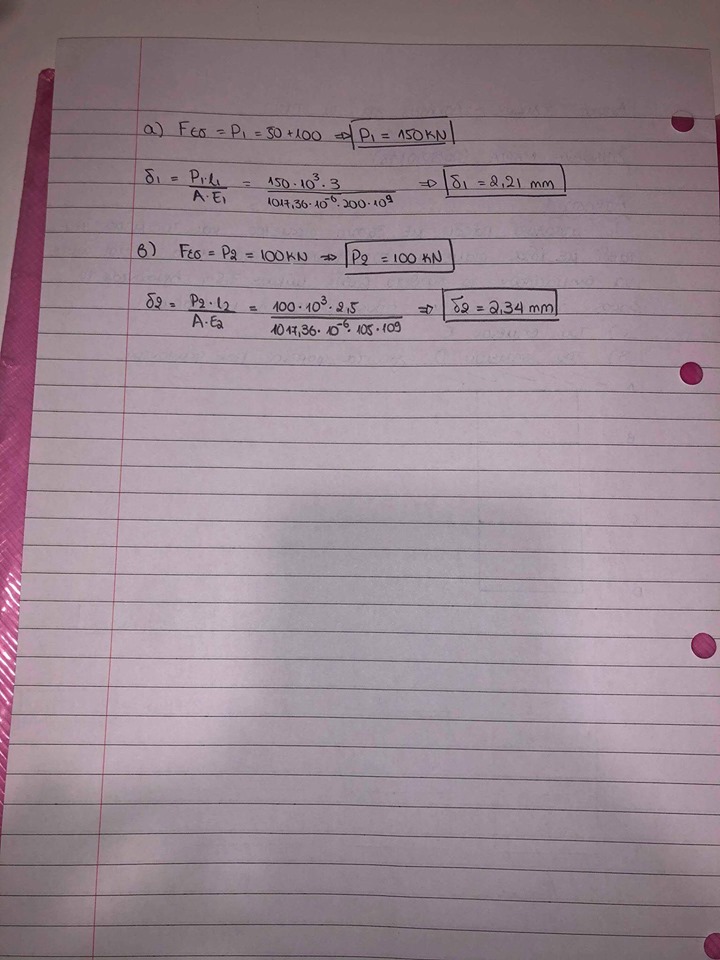 α) Fεσ = P₁ = 50 + 100 ⇒ P₁ = 150 KN
δ₁ = P₁·l₁ / A·E₁ = 150·10³·3 / 1017,36·10⁻⁶·200·10⁹ ⇒ δ₁ = 2,21 mm
β) Fεσ = P₂ = 100 KN ⇒ P₂ = 100 KN
δ₂ = P₂·l₂ / A·E₂ = 100·10³·2,5 / 1017,36·10⁻⁶·105·10⁹ ⇒ δ₂ = 2,34 mm